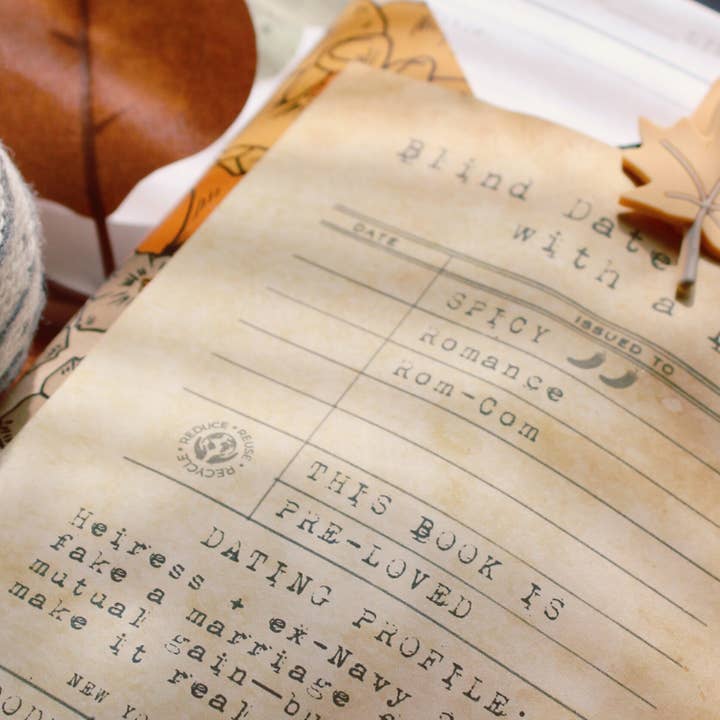 Blind Date
with a
DATE
ISSUED TO
SPICY
Romance
Rom-Com
REDUCE • REUSE • RECYCLE •
THIS BOOK IS
PRE-LOVED
DATING PROFILE:
Heiress + ex-Navy
fake a marriage
mutual gain—
make it real
NEW